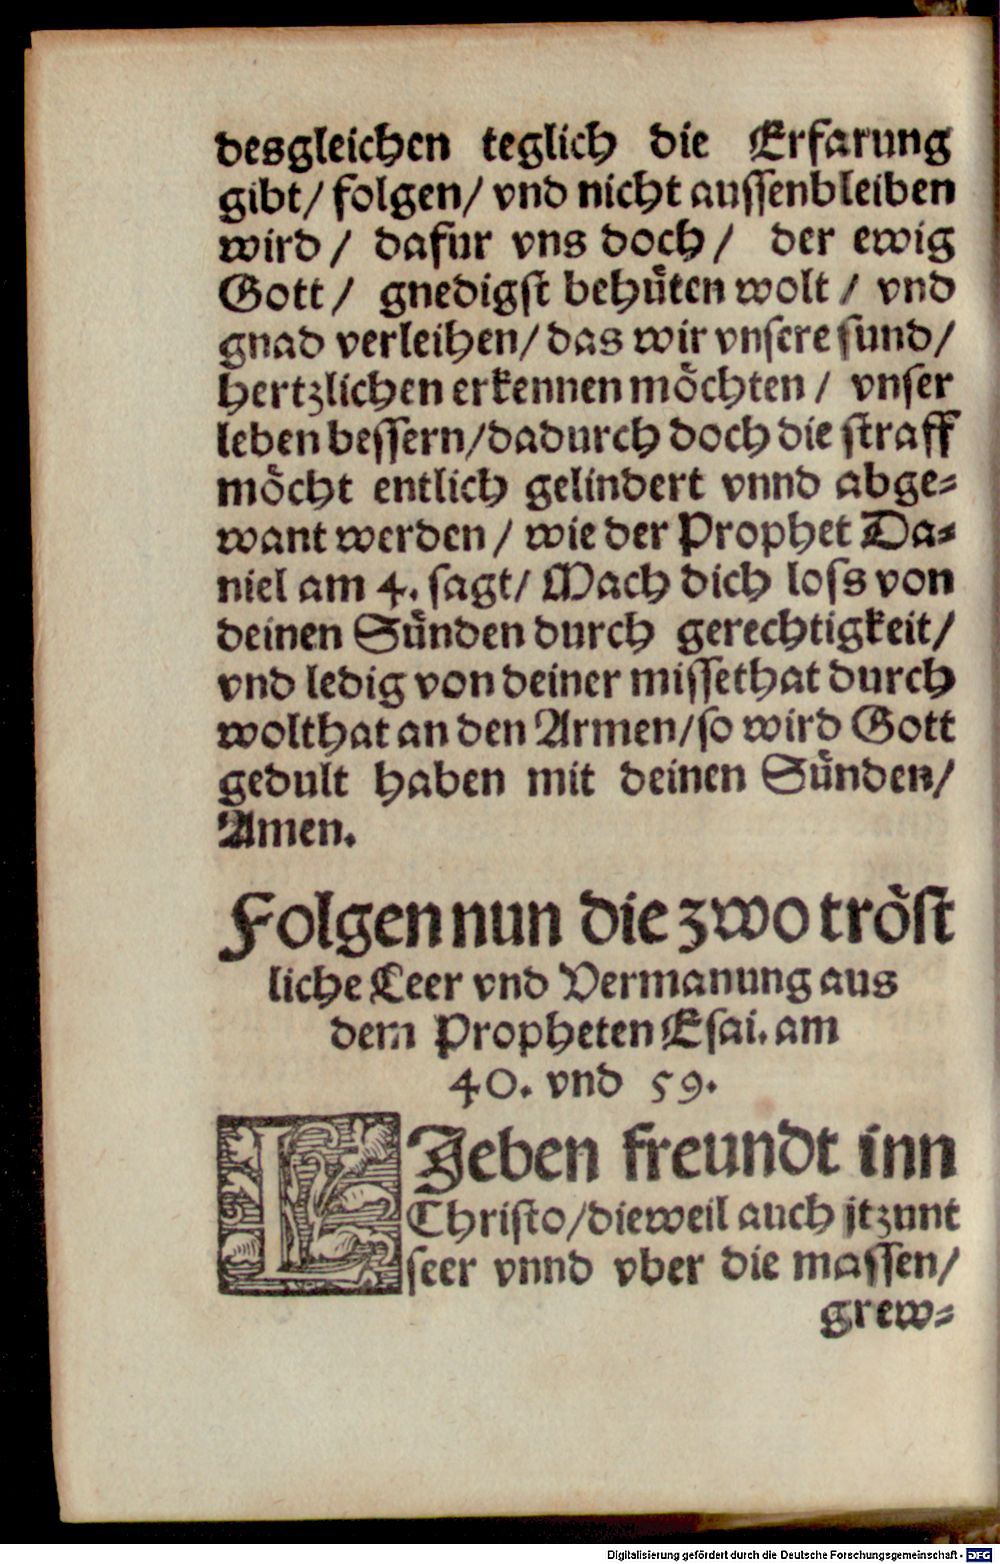 desgleichen teglich die Erfarung
gibt/ folgen/ vnd nicht aussenbleiben
wird/ dafur vns doch/ der ewig
Gott/ gnedigst behuͤten wolt/ vnd
gnad verleihen/ das wir vnsere sund/
hertzlichen erkennen moͤchten/ vnser
leben bessern/ dadurch doch die straff
moͤcht entlich gelindert vnnd abge⸗
want werden/ wie der Prophet Da⸗
niel am 4. sagt/ Mach dich loss von
deinen Suͤnden durch gerechtigkeit/
vnd ledig von deiner missethat durch
wolthat an den Armen/ so wird Gott
gedult haben mit deinen Suͤnden/
Amen.
Folgen nun die zwo troͤst
liche Leer vnd Vermanung aus
dem Propheten Esai. am
40. vnd 59.
LIeben freundt inn
Christo/ dieweil auch jtzunt
seer vnnd vber die massen/
grew⸗
Digitalisierung gefördert durch die Deutsche Forschungsgemeinschaft - DFG